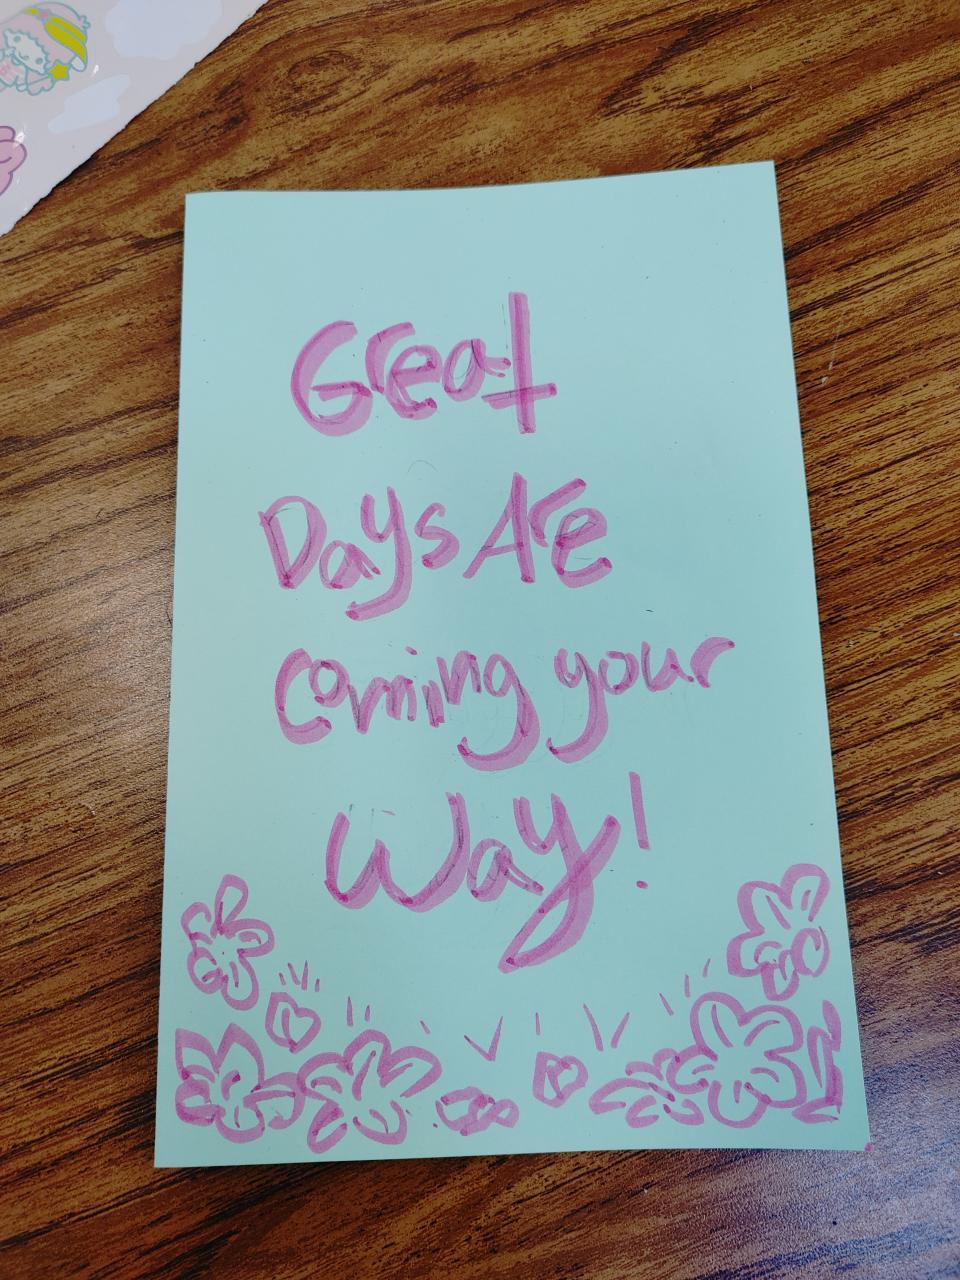 Great
Days Are
coming your
Way!